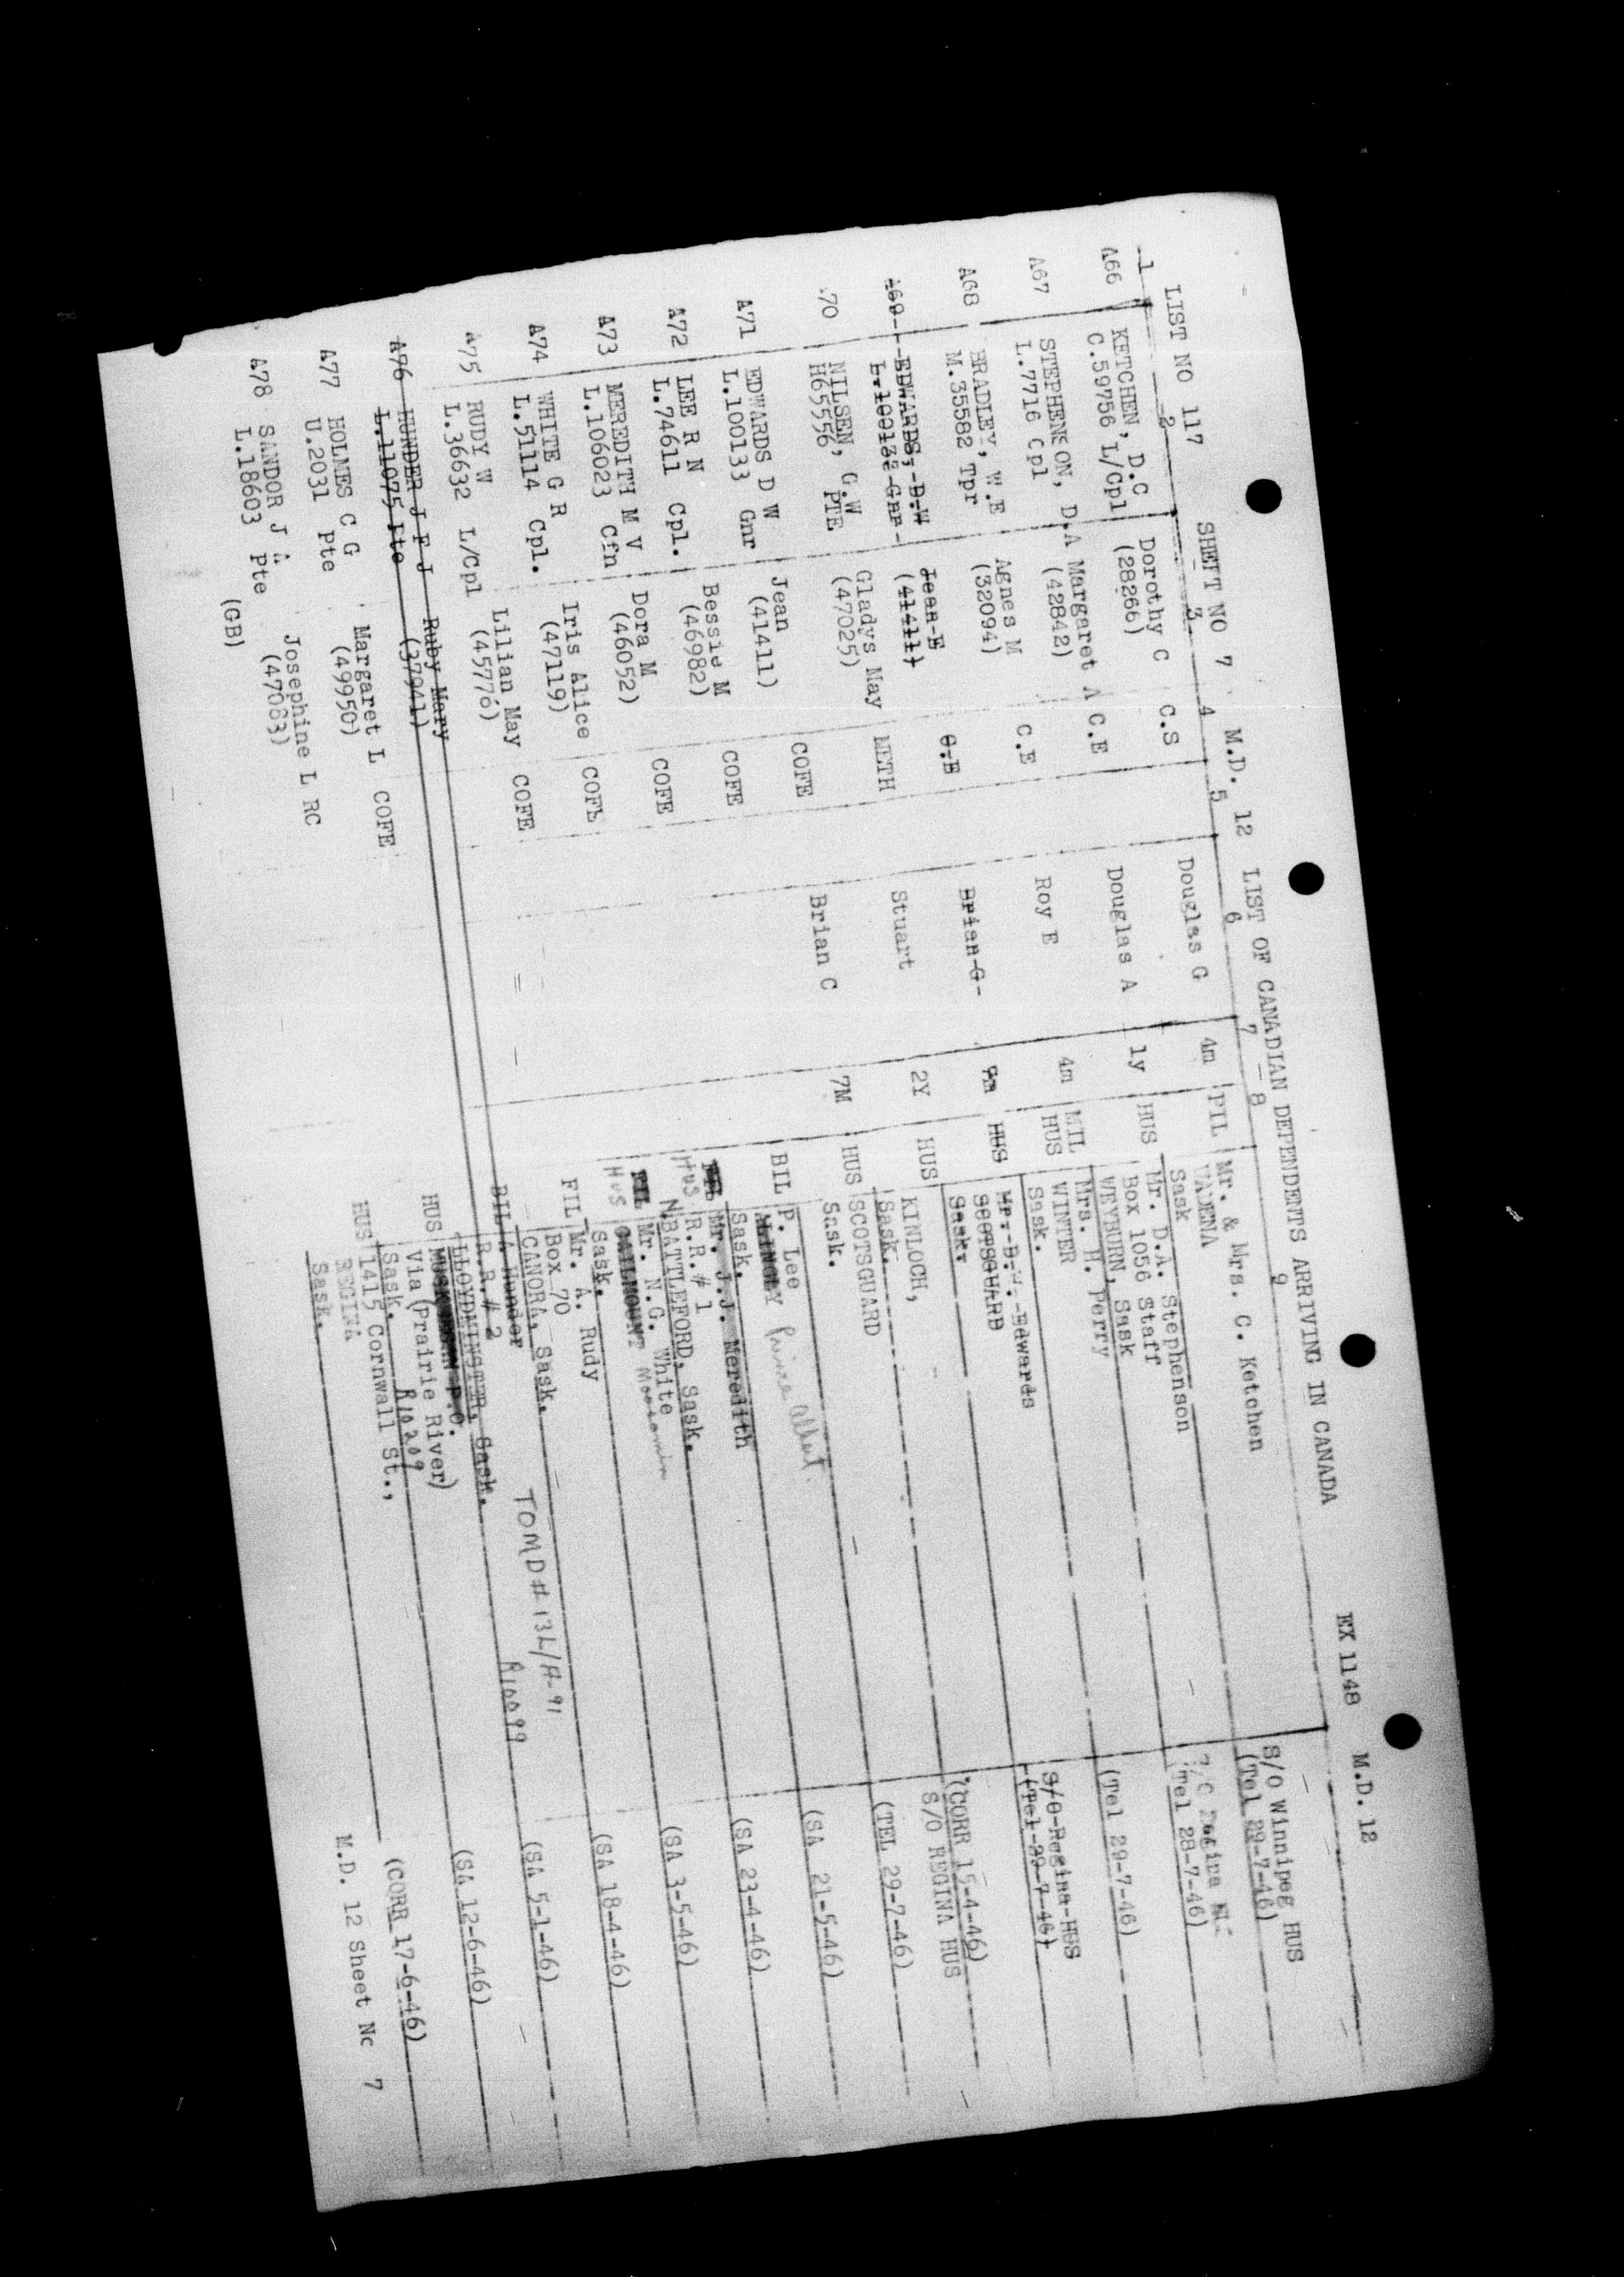 LIST NO 117 SHEET NO 7 M.D. 12 LIST OF CANADIAN DEPENDENTS ARRIVING IN CANADA EX 1148 M.D. 12
1 2 3 4 5 6 7 8 9
A66 KETCHEN, D.C Dorothy C C.S Douglas G 4m PIL Mr. & Mrs. C. Ketchen S/O Winnipeg HUS
C.59756 L/Cpl (28266) WADENA (Tel 29-7-46)
Sask
A67 STEPHENSON, D.A Margaret A C.E Douglas A 1y HUS Mr. D.A. Stephenson
L.7716 Cpl (42842) Box 1056 Staff (Tel 28-7-46)
WEYBURN, Sask
A68 BRADLEY, W.E Agnes M C.E Roy E 4m MIL Mrs. H. Perry (Tel 29-7-46)
M.35582 Tpr (32094) HUS WINTER
Sask.
A69 EDWARDS, D.W Jean E C.E Brian G 9m HUS Mr. D.W. Edwards S/O Regina HUS
Gnr (41411) SCOTSGUARD (Tel 29-7-46)
Sask.
70 NILSEN, G.W Gladys May METH Stuart 2Y HUS KINLOCH, (CORR 15-4-46)
H65556 PTE (47025) Sask. S/O REGINA HUS
A71 EDWARDS D W Jean COFE Brian C 7M HUS SCOTSGUARD (TEL 29-7-46)
L.100133 Gnr (41411) Sask.
A72 LEE R N Bessie M COFE BIL P. Lee (SA 21-5-46)
L.74611 Cpl. (46982) Prince Albert.
Sask.
A73 MEREDITH M V Dora M COFE HUS Mr. J.J. Meredith (SA 23-4-46)
L.106023 Cfn (46052) R.R.# 1
N.BATTLEFORD, Sask.
A74 WHITE G R Iris Alice COFE FIL Mr. N.G. White (SA 3-5-46)
L.51114 Cpl. (47119) HUS Moosomin
Sask.
A75 RUDY W Lilian May COFE FIL Mr. A. Rudy (SA 18-4-46)
L.36632 L/Cpl (45776) Box 70
CANORA, Sask.
A76 HUNDER J F J Ruby Mary BIL A Hunder TOMD# 13L/A-91 (SA 5-1-46)
L.11075 Pte (37941) R.R.# 2
LLOYDMINSTER, Sask. R10099
A77 HOLMES C G Margaret L COFE HUS P.O. (SA 12-6-46)
U.2031 Pte (49950) Via (Prairie River)
Sask. R10209
A78 SANDOR J A Josephine L RC HUS 1415 Cornwall St., (CORR 17-6-46)
L.18603 Pte (47083) REGINA
(GB) Sask.
M.D. 12 Sheet No 7